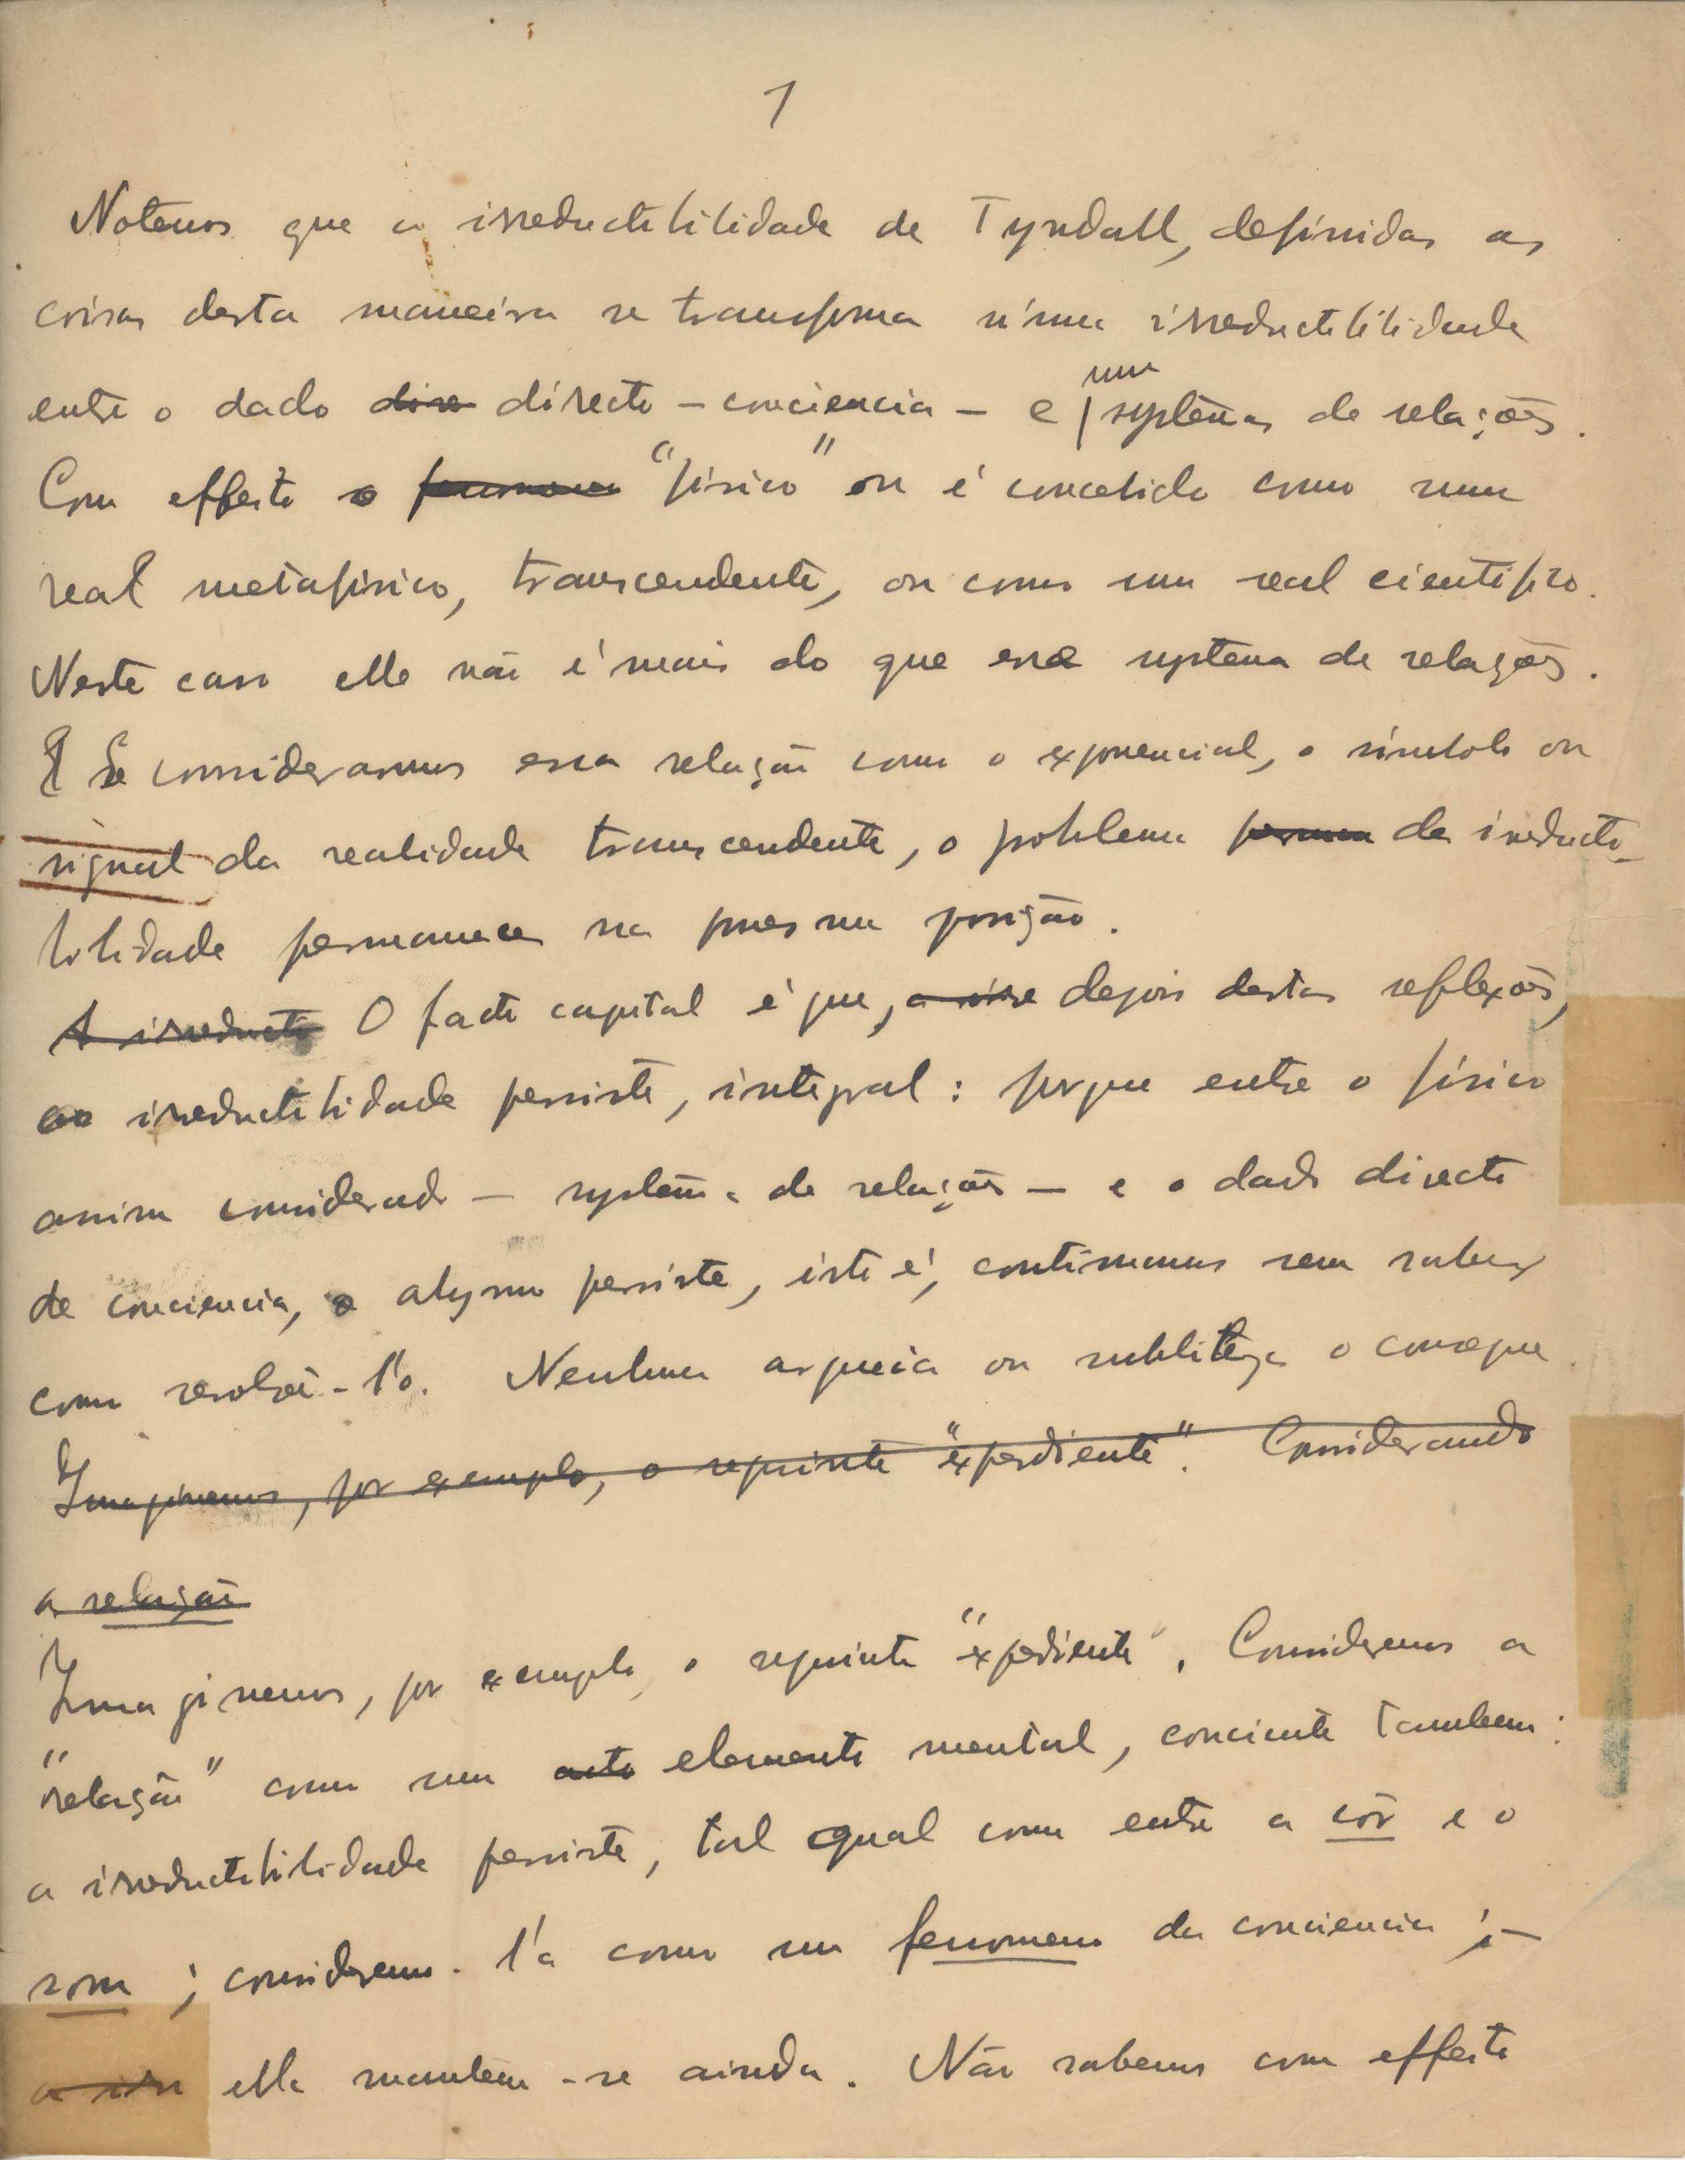 1
Notemos que a irreductibilidade de Tyndall, definidas as
coisas desta maneira se transforma n'uma irreductibilidade
entre o dado dire directo - conciencia - e um systemas de relações.
Com effeito o fenomeno "físico" ou é concebido como um
real metafisico, transcendente, ou como um real cientifico.
Neste caso elle não é mais do que esse systema de relações.
E Se considerarmos essa relação como o exponencial, o simbolo ou
signal da realidade transcendente, o problema perman da irreducti-
bilidade permanece na mesma posição.
A irreducti O facto capital é que, a irre depois destas reflexões,
a irreductibilidade persiste, integral: porque entre o físico
assim considerado - systema de relações - e o dado directo
de conciencia, o abysmo persiste, isto é, continuamos sem saber
como resolvê-l'o. Nenhuma argucia ou subtileza o consegue
Imaginemos, por exemplo, o seguinte "expediente". Considerando
a relação
Imaginemos, por exemplo, o seguinte "expediente". Consideremos a
"relação" como um acto elemento mental, conciente tambem:
a irreductibilidade persiste, tal qual como entre a côr e o
som; consideremo-l'a como um fenomeno da conciencia; -
a irr ella mantem-se ainda. Não sabemos com effeito